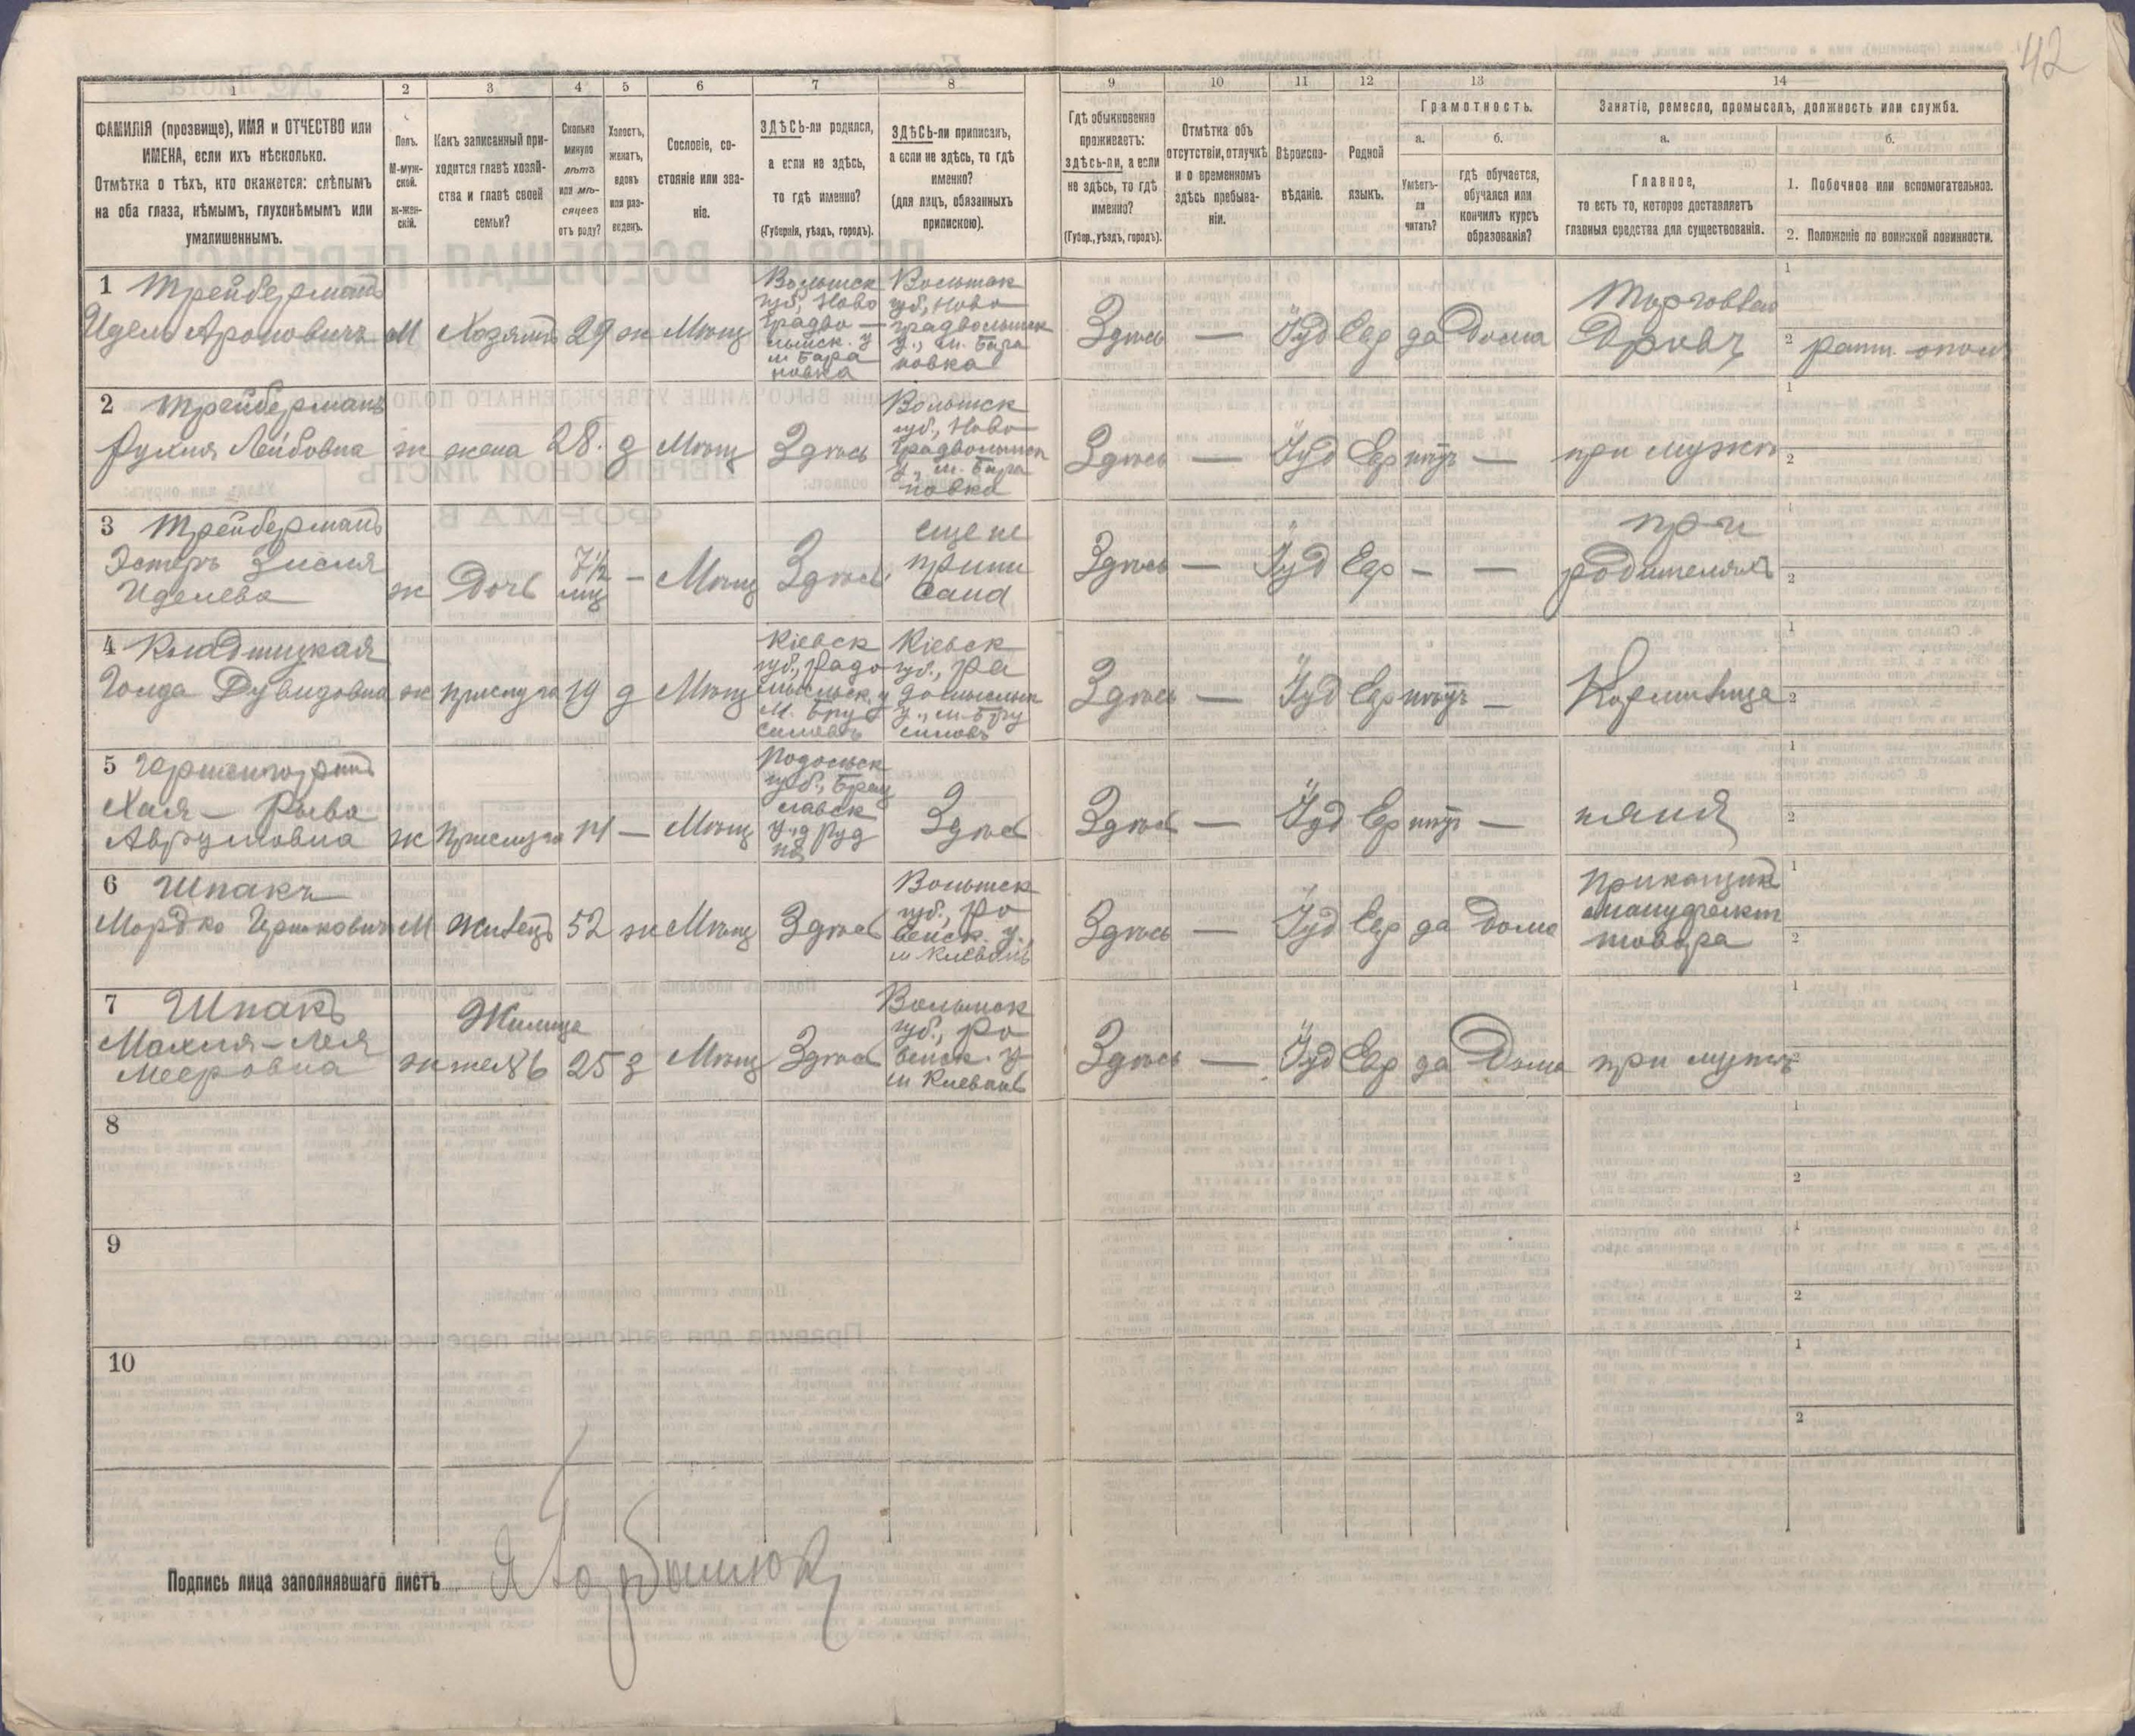 42
1 2 3 4 5 6 7 8 9 10 11 12 13 14
ФАМИЛІЯ (прозвище), ИМЯ и ОТЧЕСТВО или
ИМЕНА, если ихъ нѣсколько.
Отмѣтка о тѣхъ, кто окажется: слѣпымъ
на оба глаза, нѣмымъ, глухонѣмымъ или
умалишеннымъ.
Полъ.
М-муж-
ской.
ж-жен-
скій.
Какъ записанный при-
ходится главѣ хозяй-
ства и главѣ своей
семьи?
Сколько
минуло
лѣтъ
или мѣ-
сяцевъ
отъ роду?
Холостъ,
женатъ,
вдовъ
или раз-
веденъ.
Сословіе, со-
стояніе или зва-
ніе.
ЗДѢСЬ-ли родился,
а если не здѣсь,
то гдѣ именно?
(Губернія, уѣздъ, городъ).
ЗДѢСЬ-ли приписанъ,
а если не здѣсь, то гдѣ
именно?
(для лицъ, обязанныхъ
припискою).
Гдѣ обыкновенно
проживаетъ:
здѣсь-ли, а если
не здѣсь, то гдѣ
именно?
(Губер., уѣздъ, городъ).
Отмѣтка объ
отсутствіи, отлучкѣ
и о временномъ
здѣсь пребыва-
ніи.
Вѣроиспо-
вѣданіе.
Родной
языкъ.
Грамотность.
а.
Умѣетъ-
ли
читать?
б.
гдѣ обучается,
обучался или
кончилъ курсъ
образованія?
Занятіе, ремесло, промыселъ, должность или служба.
а.
Главное,
то есть то, которое доставляетъ
главныя средства для существованія.
б.
1. Побочное или вспомогательное.
2. Положеніе по воинской повинности.
1 Трейберманъ
Идель Ароновичъ
М Хозяинъ 29 ж Мѣщ
Волынск
губ., Ново
градво-
лынск. у
м Бара
новка
Волынск
губ., Ново
градволынск
у., м. Бара
новка
Здѣсь — Іуд Евр да Дома
Торговля
Дровъ
1
2 ратн. ополч
2 Трейберманъ
Рухля Лейбовна
ж жена 28. з Мѣщ Здѣсь
Волынск
губ., Ново
градволынск
у., м. Бара
новка
Здѣсь — Іуд Евр нѣтъ — при мужѣ
1
2
3 Трейберманъ
Эстеръ Зисля
Иделева
ж Дочь
7½
мѣц
— Мѣщ Здѣсь
еще не
припи
сана
Здѣсь — Іуд Евр — —
при
родителяхъ
1
2
4
Голда Дувидовна
ж прислуга 19 д Мѣщ
Кіевск
губ., Радо
мысльск. у
м. Бру
силовъ
Кіевск
губ., Ра
домысльск
у., м. Бру
силовъ
Здѣсь — Іуд Евр нѣтъ — Кормилица
1
2
5
Хая — Рыва
Аврумовна
ж прислуга 14 — Мѣщ
Подольск
губ., Брац
лавск
Здѣсь
Здѣсь — Іуд Евр нѣтъ — няня
1
2
6 Шпакъ
Мордко Гершковичъ
М Жилецъ 52 ж Мѣщ Здѣсь
Волынск
губ., Ро
венск. у.
м Клевань
Здѣсь — Іуд Евр да Дома
Прикащик
мануфакт
товара
1
2
7 Шпакъ
Малля-Лея
Мееровна
ж
Жилица
жен. 6
25 з Мѣщ Здѣсь
Волынск
губ., Ро
венск. у
м Клевань
Здѣсь — Іуд Евр да Дома при мужѣ
1
8
1
2
9
1
2
10
1
2
Подпись лица заполнявшаго листъ